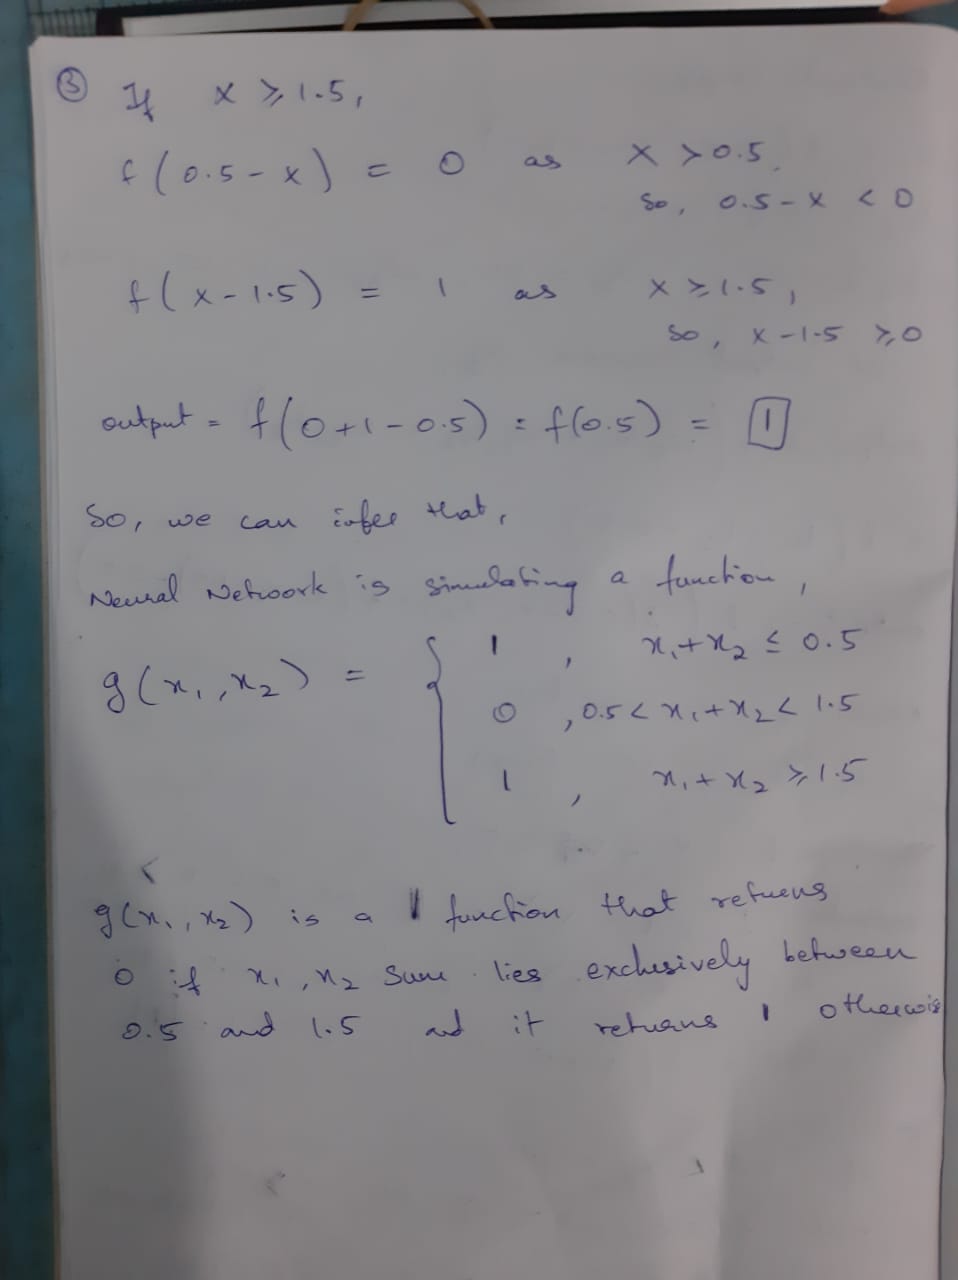 ③ If x ≥ 1.5,
f(0.5 - x) = 0 as x > 0.5
so, 0.5 - x < 0
f(x - 1.5) = 1 as x ≥ 1.5,
so, x - 1.5 ≥ 0
output = f(0 + 1 - 0.5) = f(0.5) = 1
So, we can infer that,
Neural Network is simulating a function,
g(x₁, x₂) = { 1 , x₁ + x₂ ≤ 0.5
0 , 0.5 < x₁ + x₂ < 1.5
1 , x₁ + x₂ ≥ 1.5
g(x₁, x₂) is a function that returns
0 if x₁, x₂ sum lies exclusively between
0.5 and 1.5 and it returns 1 otherwis